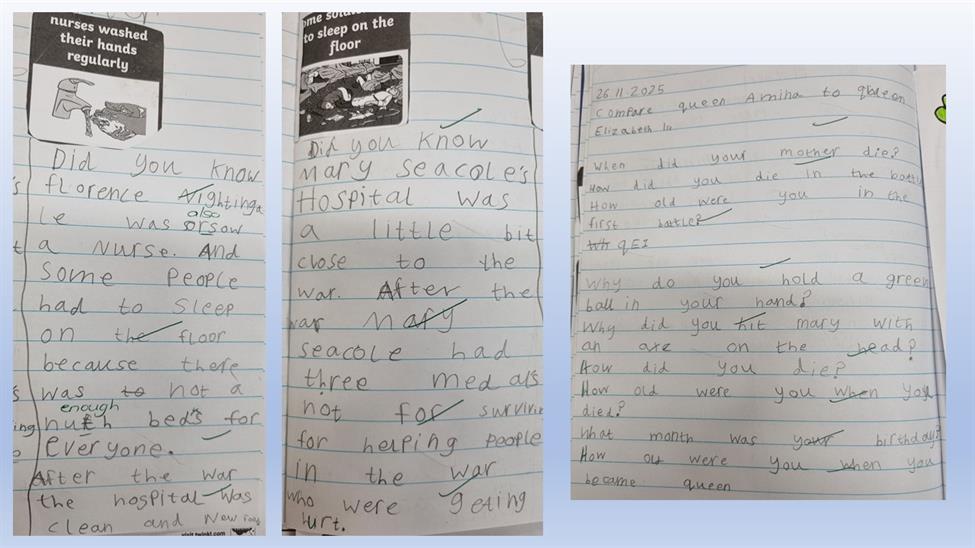 nurses washed
their hands
regularly
Did you know
florence Nightinga
le was orsow
also
a Nurse. And
some people
had to sleep
on the floor
because there
was to not a
enough
nuth beds for
everyone.
After the war
the hospital was
clean and New
visit twinkl.com
to sleep on the
floor
Did you know
mary seacole's
Hospital was
a little bit
close to the
war. After the
war mary
seacole had
three medals
not for
for helping people
in the war
who were geting
hurt.
26 11 2025
compare queen Amina to queen
Elizabeth
When did your mother die?
How did you die in the battl
How old were you in the
first battle?
Wh QEI
Why do you hold a green
ball in your hand?
Why did you hit mary with
an axe on the head?
How did you die?
How old were you when you
died?
What month was your birthday?
How old were you when you
became queen